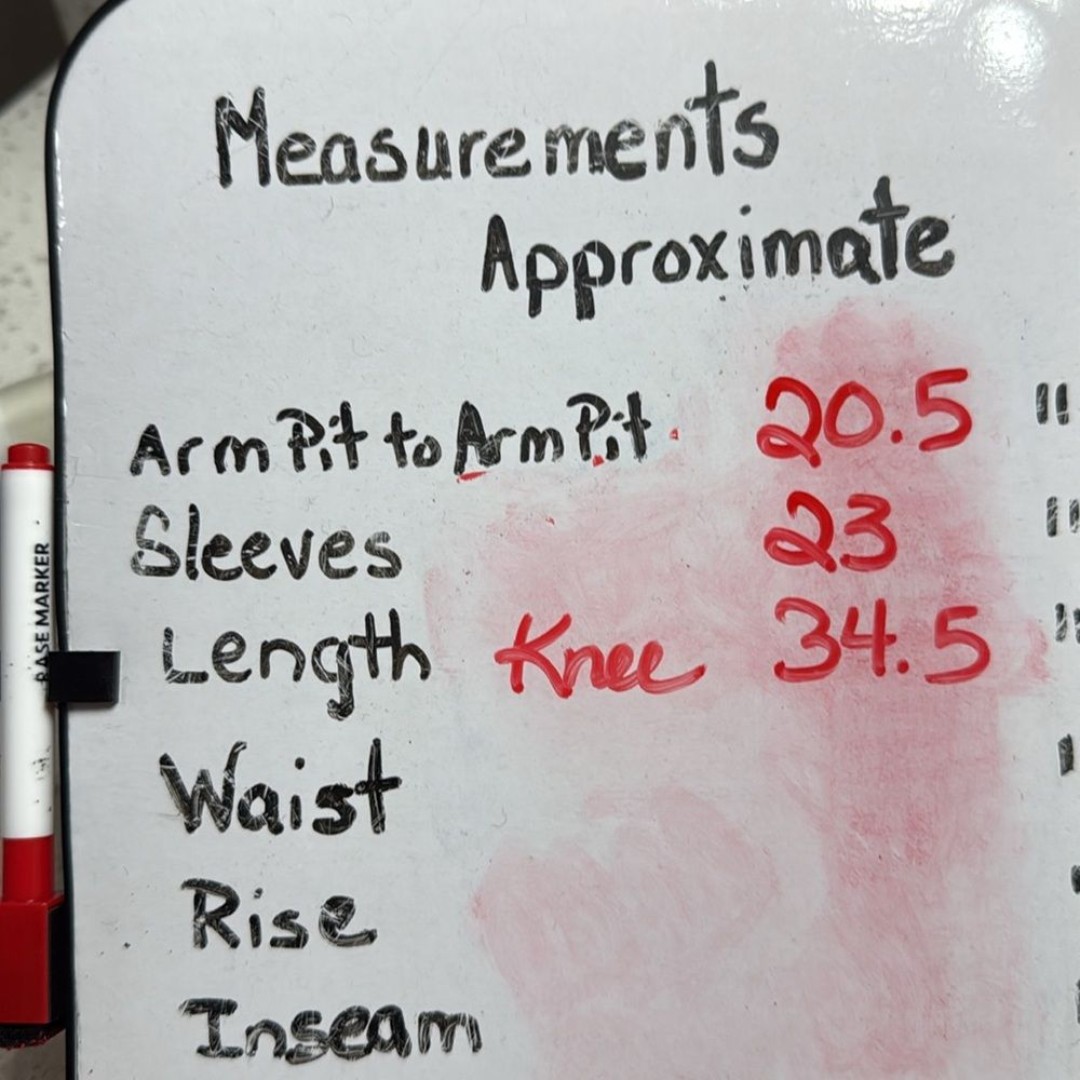 Measurements
Approximate
ArmPit to ArmPit 20.5 "
Sleeves 23 "
Length Knee 34.5 "
Waist
Rise
Inseam
ASE MARKER